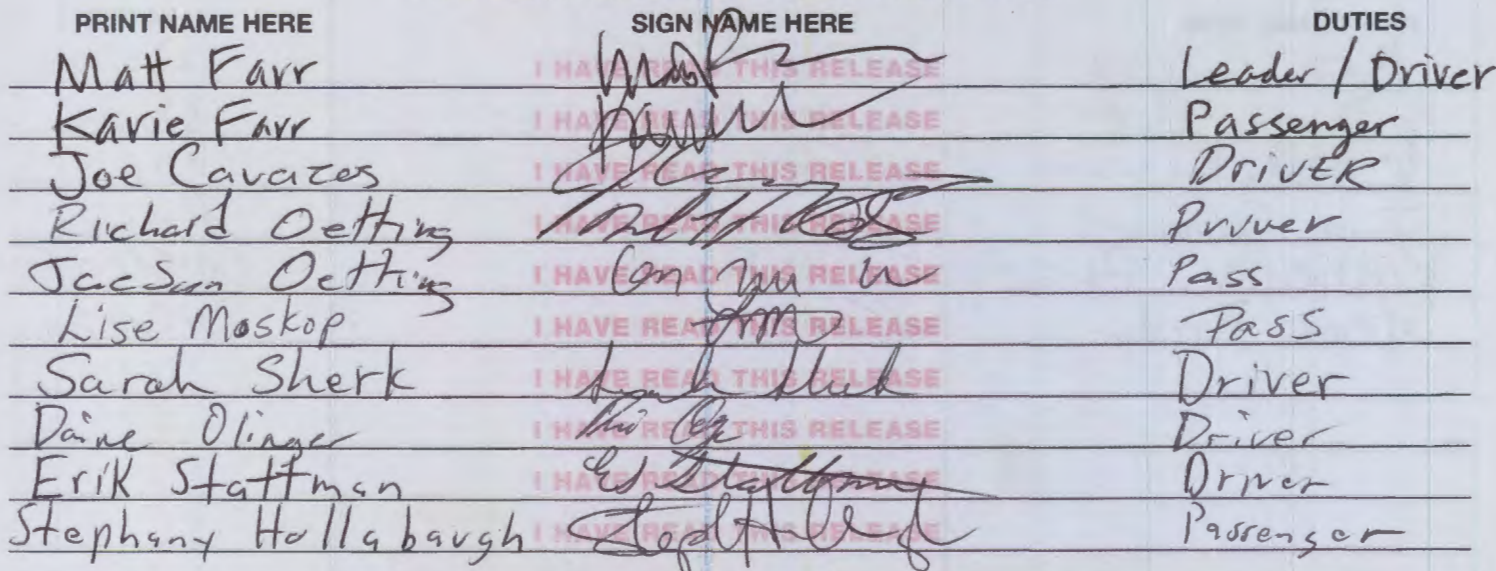 PRINT NAME HERE SIGN NAME HERE DUTIES
Matt Farr I HAVE READ THIS RELEASE Leader / Driver
Karie Farr I HAVE READ THIS RELEASE Passenger
Joe Cavazos I HAVE READ THIS RELEASE DrivER
Richard Oetting I HAVE READ THIS RELEASE
Oetting I HAVE READ THIS RELEASE Pass
Lise Moskop I HAVE READ THIS RELEASE Pass
Sarah Sherk I HAVE READ THIS RELEASE Driver
Daine Olinger I HAVE READ THIS RELEASE Driver
Erik Stattman I HAVE READ THIS RELEASE Driver
Stephany Hollabaugh I HAVE READ THIS RELEASE Passenger